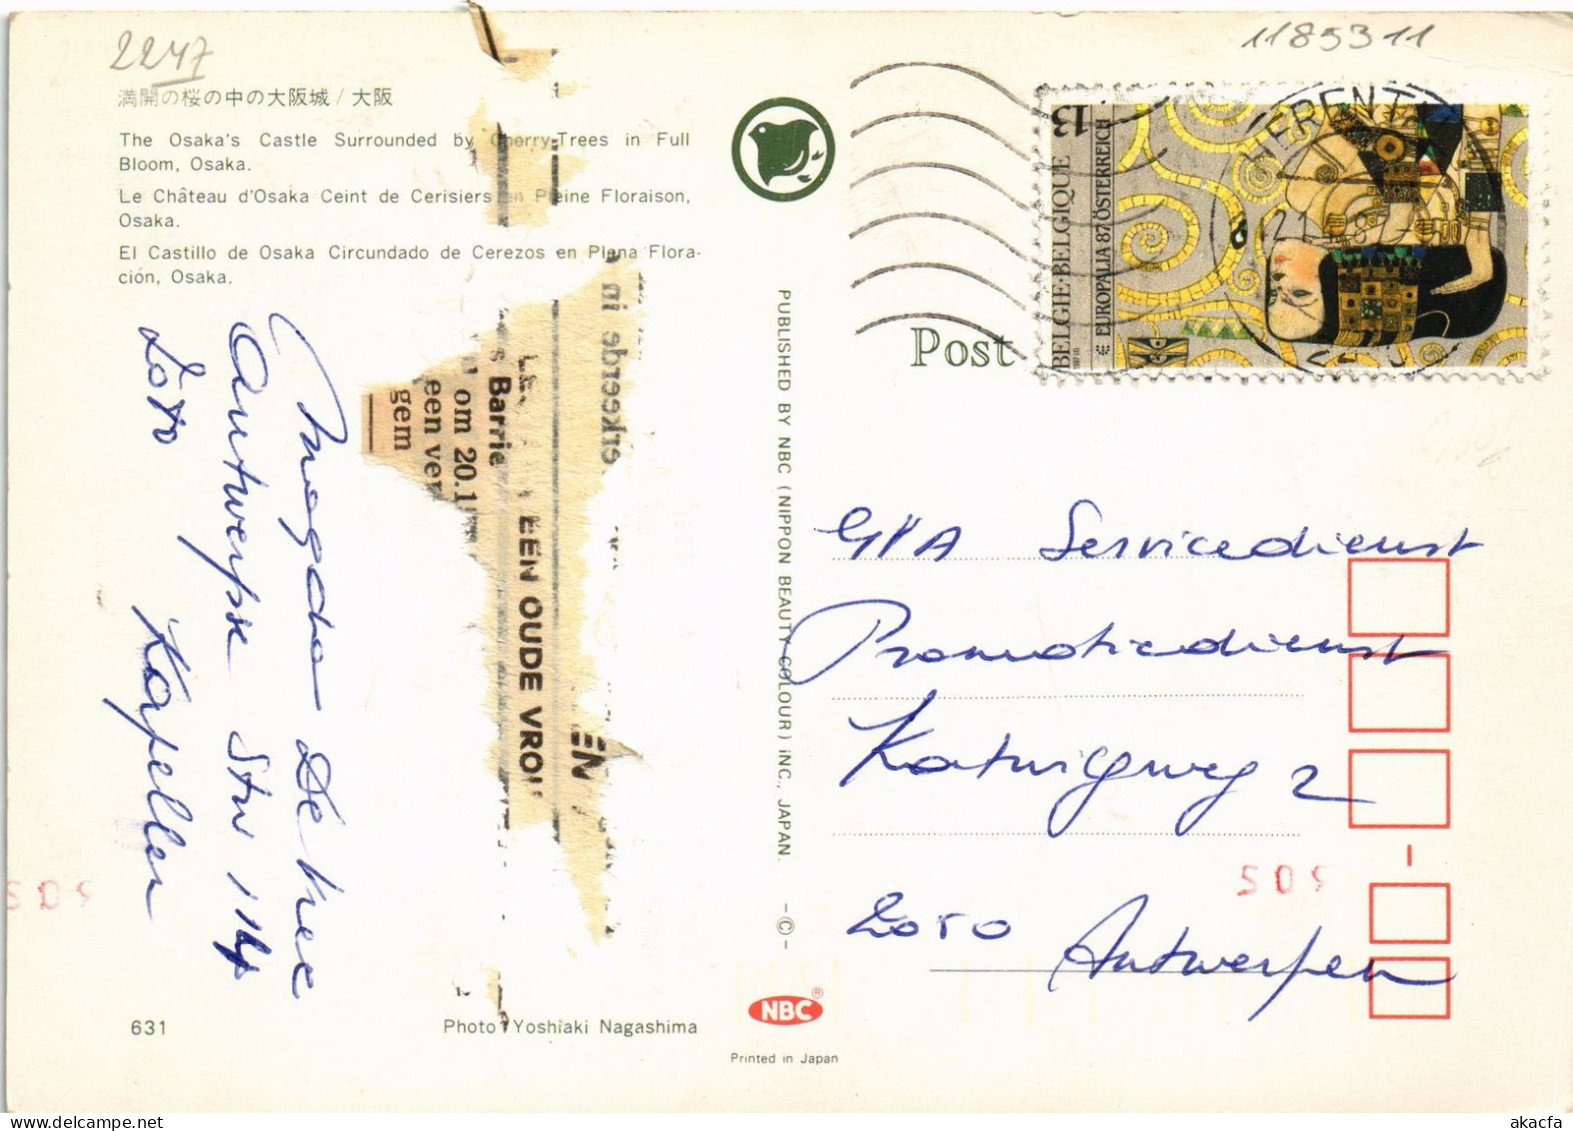 2247
1185311
満開の桜の中の大阪城 / 大阪
The Osaka's Castle Surrounded by Cherry-Trees in Full
Bloom, Osaka.
Le Château d'Osaka Ceint de Cerisiers en Pleine Floraison,
Osaka.
El Castillo de Osaka Circundado de Cerezos en Plena Flora-
ción, Osaka.
Magda De Kree
Antwerpse Stw 114
Kapellen
s Barrie
om 20.1
een ver
gem
EEN OUDE VRO
EN
enkeerde in
PUBLISHED BY NBC (NIPPON BEAUTY COLOUR) INC., JAPAN. -©-
Post
13
BELGIE·BELGIQUE
EUROPALIA 87 ÖSTERREICH
HERENT
GVA Servicedienst
Promotiedienst
Katwilgweg 2
2050 Antwerpen
509
509
631
Photo Yoshiaki Nagashima
NBC®
Printed in Japan
akacfa